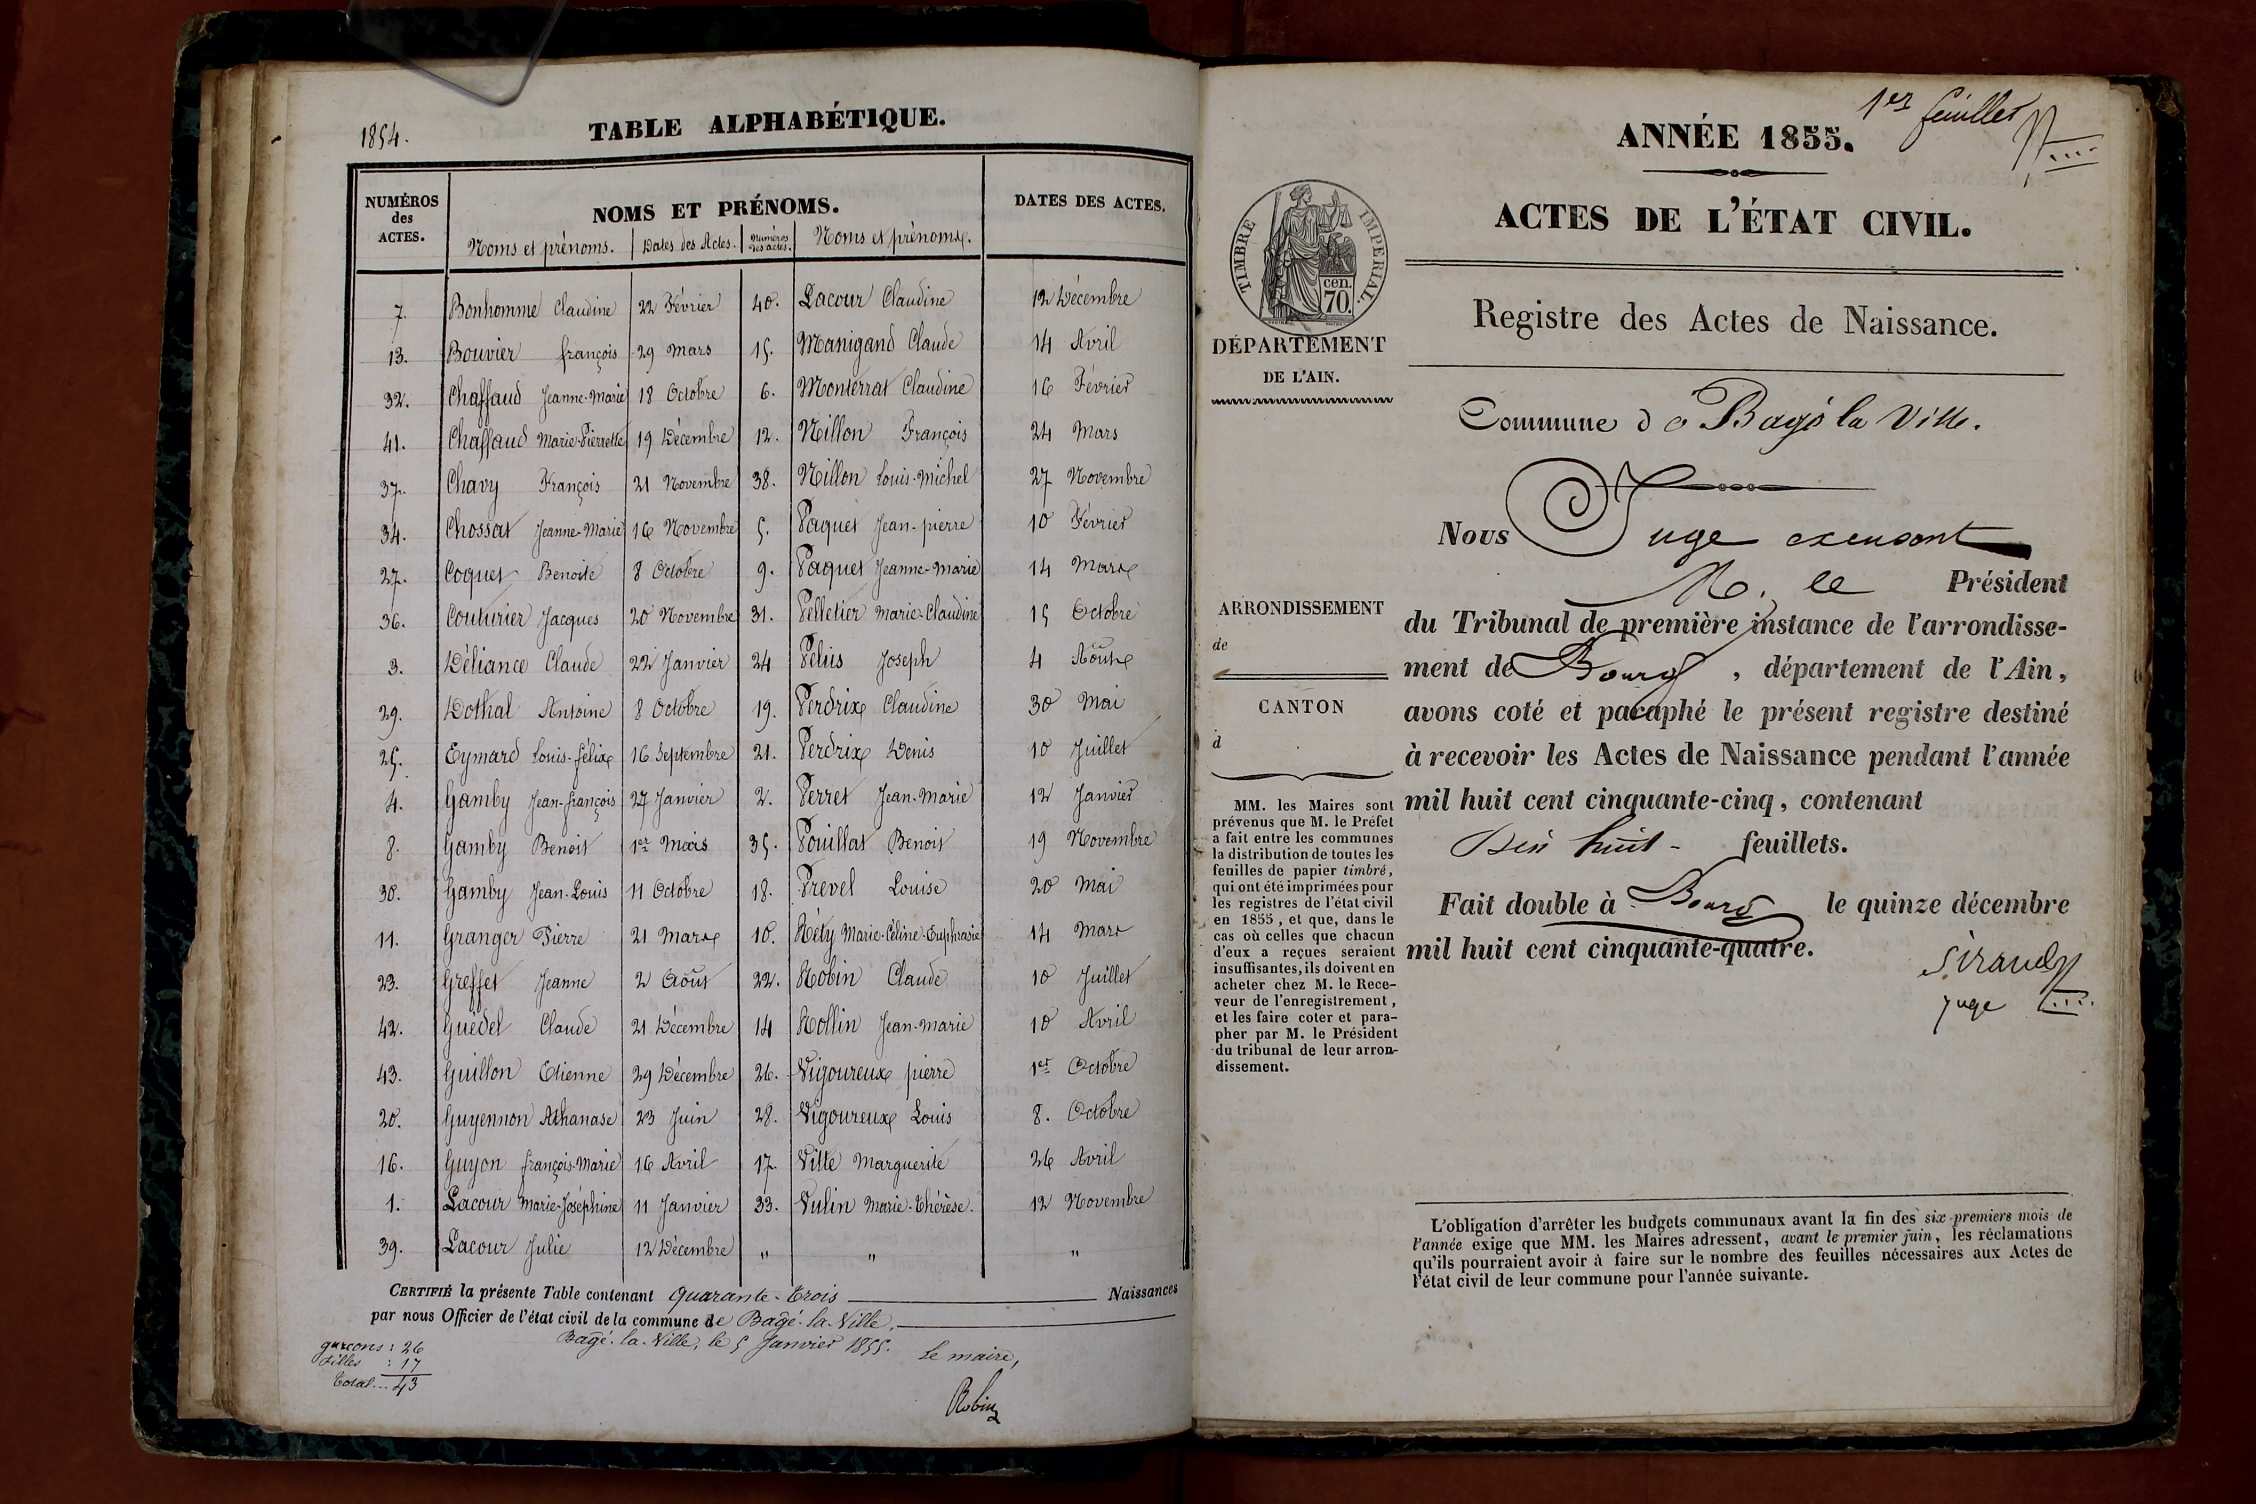 1854.
TABLE ALPHABÉTIQUE.
NUMÉROS des ACTES.
NOMS ET PRÉNOMS.
DATES DES ACTES.
Noms et prénoms. Dates des Actes. Numéros des actes. Noms et prénoms.
7. Bonhomme Claudine 22 Février 40. Lacour Claudine 12 Décembre
13. Bouvier françois 29 Mars 15. Manigand Claude 14 Avril
32. Chaffaud Jeanne-Marie 18 Octobre 6. Monterrat Claudine 16 Février
41. Chaffaud Marie-Pierrette 19 Décembre 12. Nillon François 24 Mars
37. Chavy François 21 Novembre 38. Nillon Louis-Michel 27 Novembre
34. Chossat Jeanne-Marie 16 Novembre 5. Paquet Jean-pierre 10 Février
27. Coquet Benoite 8 Octobre 9. Paquet Jeanne-Marie 14 Mars
36. Couturier Jacques 20 Novembre 31. Pelletier Marie-Claudine 15 Octobre
3. Déliance Claude 22 Janvier 24 Pelus Joseph 4 Août
29. Dothal Antoine 8 Octobre 19. Perdrix Claudine 30 Mai
25. Eymard Louis-félix 16 Septembre 21. Perdrix Denis 10 Juillet
4. Gamby Jean-françois 27 Janvier 2. Perret Jean-Marie 12 Janvier
8. Gamby Benoit 1er Mars 35. Pouillat Benoit 19 Novembre
30. Gamby Jean-Louis 11 Octobre 18. Prevel Louise 20 Mai
11. Granger Pierre 21 Mars 10. Réty Marie-Céline-Euphrasie 14 Mars
23. Greffet Jeanne 2 Août 22. Robin Claude 10 Juillet
42. Guédel Claude 21 Décembre 14 Rollin Jean-Marie 10 Avril
43. Guillon Etienne 29 Décembre 26. Vigoureux pierre 1er Octobre
20. Guyennon Athanase 23 Juin 28. Vigoureux Louis 8. Octobre
16. Guyon françois-Marie 16 Avril 17. Vitte Marguerite 26 Avril
1. Lacour Marie-Joséphine 11 Janvier 33. Vulin Marie-Thérèse. 12 Novembre
39. Lacour Julie 12 Décembre " " "
CERTIFIÉ la présente Table contenant Quarante-Trois Naissances
par nous Officier de l'état civil de la commune de Bagé-la-Ville.
Bagé-la-Ville, le 5 Janvier 1855.
Le maire,
Robin
garcons : 26
filles : 17
Total... 43
1er feuillet
ANNÉE 1855.
ACTES DE L'ÉTAT CIVIL.
TIMBRE IMPÉRIAL.
cen. 70.
DÉPARTEMENT
DE L'AIN.
Registre des Actes de Naissance.
Commune de Bagé la Ville.
Nous Juge
M. le Président
du Tribunal de première instance de l'arrondisse-
ment de Bourg, département de l'Ain,
avons coté et paraphé le présent registre destiné
à recevoir les Actes de Naissance pendant l'année
mil huit cent cinquante-cinq, contenant
Dix huit - feuillets.
Fait double à Bourg le quinze décembre
mil huit cent cinquante-quatre.
Siraud
juge
ARRONDISSEMENT
de
CANTON
d
MM. les Maires sont
prévenus que M. le Préfet
a fait entre les communes
la distribution de toutes les
feuilles de papier timbré,
qui ont été imprimées pour
les registres de l'état civil
en 1855, et que, dans le
cas où celles que chacun
d'eux a reçues seraient
insuffisantes, ils doivent en
acheter chez M. le Rece-
veur de l'enregistrement,
et les faire coter et para-
pher par M. le Président
du tribunal de leur arron-
dissement.
L'obligation d'arrêter les budgets communaux avant la fin des six premiers mois de
l'année exige que MM. les Maires adressent, avant le premier juin, les réclamations
qu'ils pourraient avoir à faire sur le nombre des feuilles nécessaires aux Actes de
l'état civil de leur commune pour l'année suivante.